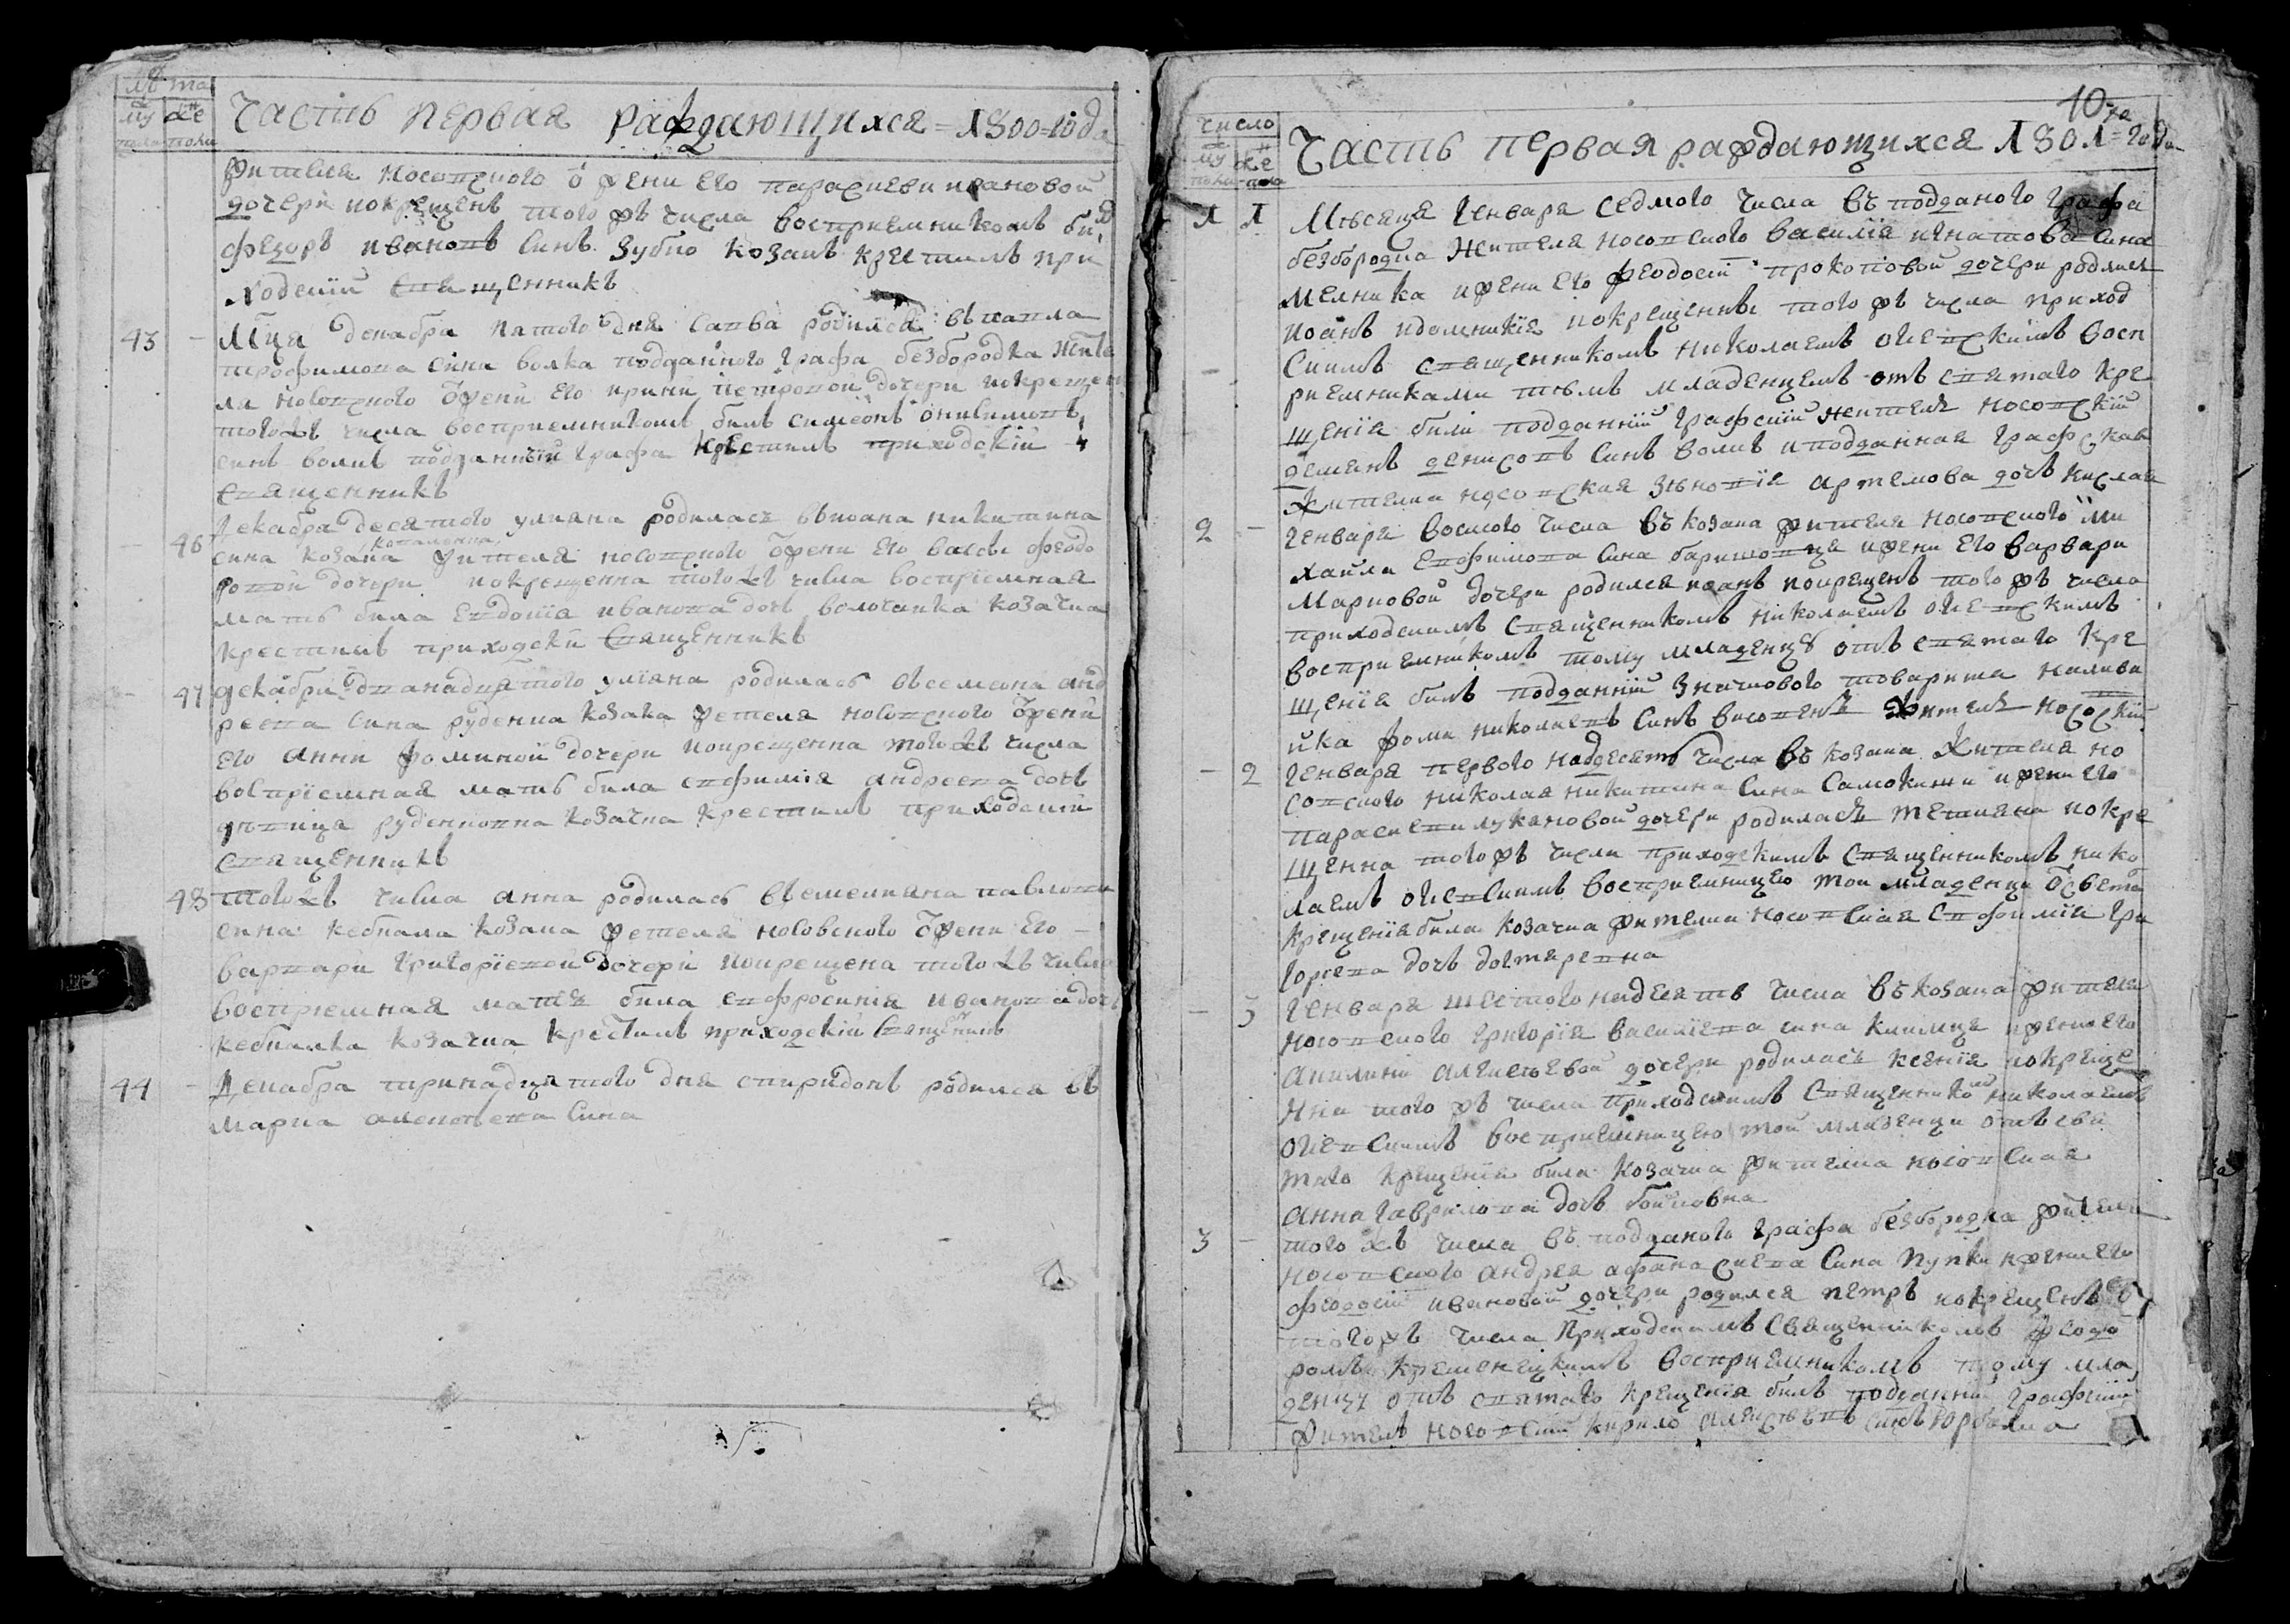 лѣта
му же
пола полu
Часть первая раждающихся = 1800 = года
жителя носовского и жени его параскеви ивановой
дочери покрещенъ того жъ числа восприемникомъ билъ
феѡдоръ ивановъ синъ зубко козакъ крестилъ при
ходский священникъ
43 – Мца декабра пятого дня савва родился въ павла
трофимова сина волка подданного графа безбородка жите
ля носовского и жени его ирини петровой дочери покрещен
того жъ числа восприемникомъ билъ симеонъ онисимовъ
синъ волкъ подданний графа крестилъ приходский
священникъ
– 46 декабра десятого улияна родилась въ ивана никитина
сина козака жителя носовского и жени его васси феодо
ровой дочери покрещенна того жъ числа восприемная
мать била евдокия иванова дочь волочаика козачка
крестилъ приходски священникъ
– 47 декабри дванадцятого улияна родилась въ семена анд
реева сина руденка козака жетеля носовского и жени
его анни фоминой дочери покрещенна того жъ числа
восприемная мать била евфимія андреева дочь
дѣвиця руденковна козачка крестилъ приходский
священникъ
48 того жъ числа анна родилась въ емелияна павлова
сина кебкала козака жетеля носовского и жени его –
варвари григорїевой дочери покрещена того жъ числа
восприемная матеѣ била евфросиния иванова дочь
кебкалка козачка крестилъ приходский священникъ
44 – Декабра тринадцятого дня спиридонъ родился въ
марка алексѣева сина
10
число
му же
пола пола
Часть первая раждающихся 1801 = года
1 1 Мѣсяця генваря седмого числа въ подданого графа
безбородка жителя носовского василія игнатова сина
мелника и жени его феодосїй прокоповой дочери родился
иоанъ и домникия покрещенны того жъ числа приход
скимъ священникомъ николаемъ олевскимъ восп
риемниками тѣмъ младенцемъ отъ святаго кре
щенїя били подданний графский житель носовский
деменъ денисовъ синъ волкъ и подданная графская
жителка носовская зѣновїя артемова дочь кислая
2 – генваря восмого числа въ козака жителя носовского ми
хаила евфимова сина баришовця и жени его варвари
марковой дочери родился иоанъ покрещенъ того жъ числа
приходскимъ священникомъ николаемъ олевскимъ
восприемникомъ тому младенцу отъ святаго кре
щенїя билъ подданний значкового товариша налива
йка фома николаевъ синъ височенъ житель носовский
– 2 генваря первого надцесять числа въ козака жителя но
совского николая никитина сина самокиши и жени его
параскевии лукяновой дочери родилась тетияна покре
щенна того жъ числа приходскимъ священникомъ нико
лаемъ олевскимъ восприемницею той младенци отъ света
крещенїя била козачка жителка носовская евфимїя гри
гориева дочь дехтяревна
– 3 генваря шестого надцеять числа въ козака жителя
носовского григорїя василїева сина киилиця и жени его
акилини алексѣевой дочери родилась ксенїя покреще
нна того жъ числа приходскимъ священникомъ николаемъ
олевскимъ восприемницею той младенци отъ свя
таго крещенїя била козачка жителка носовская
анна гаврилова дочь бойковна
3 – того жъ числа въ подданого графа безбородка жителя
носовского андрея афанасиева сина пупки и жени его
феодосїй ивановой дочери родился петръ покрещенъ
того жъ числа приходскимъ священникомъ феодо
ромъ кременецкимъ восприемникомъ тому мла
денцу отъ святаго крещенїя билъ подданний графский
житель носовский кирило алексѣевъ синъ